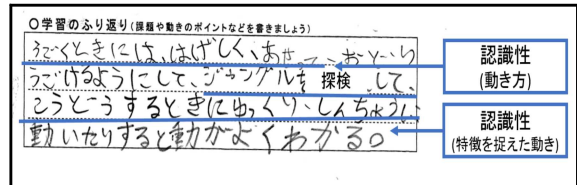 ○学習のふり返り(課題や動きのポイントなどを書きましょう)
うごくときには、はげしく、あせって、おという
うごけるようにして、ジャングルを 探検 して、
こうどうするときにゆっくり、しんちょうに
動いたりすると動がよくわかる。
認識性
(動き方)
認識性
(特徴を捉えた動き)